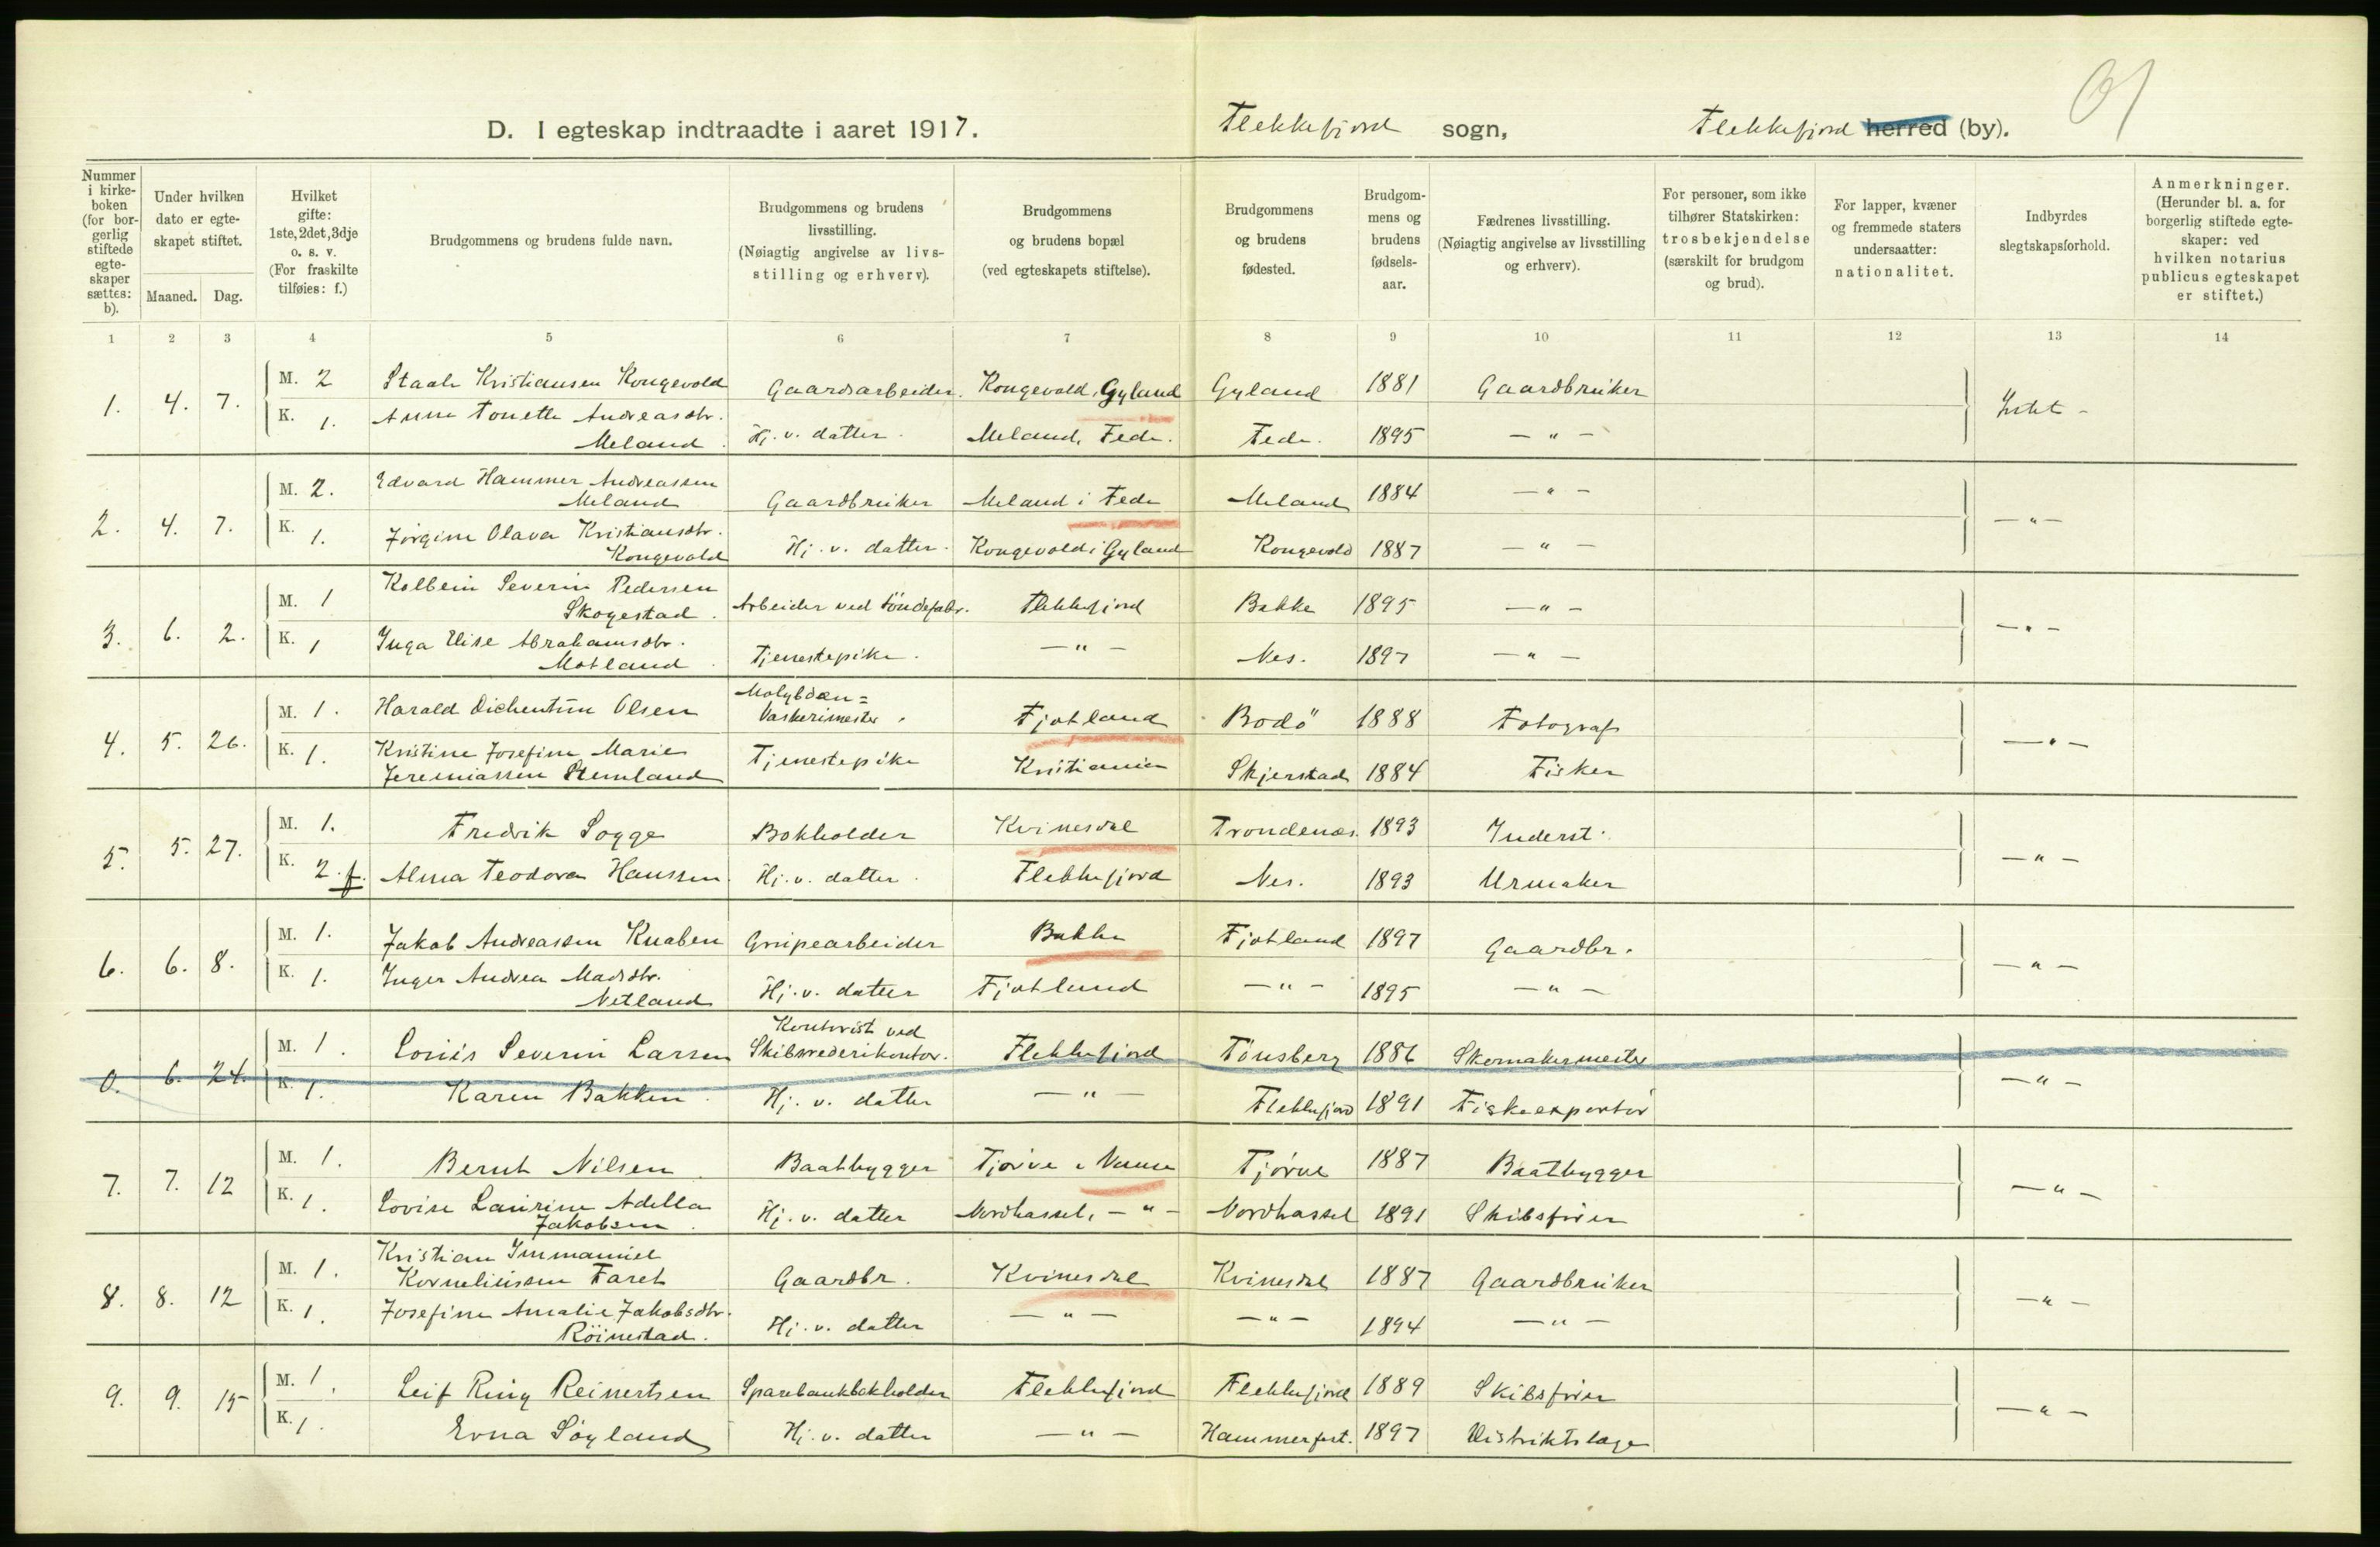 D. I egteskap indtraadte i aaret 1917. Flekkefjord sogn, Flekkefjord herred (by).
Nummer i kirkeboken (for borgerlig stiftede egteskaper sættes: b). Under hvilken dato er egteskapet stiftet. Maaned. Dag. Hvilket gifte: 1ste, 2det, 3dje o. s. v. (For fraskilte tilføies: f.) Brudgommens og brudens fulde navn. Brudgommens og brudens livsstilling. (Nøiagtig angivelse av livsstilling og erhverv). Brudgommens og brudens bopæl (ved egteskapets stiftelse). Brudgommens og brudens fødested. Brudgommens og brudens fødselsaar. Fædrenes livsstilling. (Nøiagtig angivelse av livsstilling og erhverv). For personer, som ikke tilhører Statskirken: trosbekjendelse (særskilt for brudgom og brud). For lapper, kvæner og fremmede staters undersaatter: nationalitet. Indbyrdes slegtskapsforhold. Anmerkninger. (Herunder bl. a. for borgerlig stiftede egteskaper: ved hvilken notarius publicus egteskapet er stiftet.)
1 2 3 4 5 6 7 8 9 10 11 12 13 14
1. 4. 7. M. 2 Staale Kristiansen Kongevold Gaardsarbeider. Kongevold, Gyland Gyland 1881 Gaardbruker Intet -
K. 1. Anne Tonette Andreasdtr. Meland. Hj. v. datter. Meland, Fede. Fede. 1895 — " —
2. 4. 7. M. 2. Edvard Hammer Andreassen Meland Gaardbruker Meland i Fede Meland 1884 — " — — " —
K. 1. Jørgine Olava Kristiansdtr. Kongevold Hj. v. datter. Kongevold i Gyland Kongevold 1887 — " —
3. 6. 2. M. 1 Kolbein Severin Pedersen Skogestad. Arbeider ved töndefabr. Flekkefjord Bakke 1895 — " — — " —
K. 1 Inga Elise Abrahamsdtr. Motland. Tjenestepike. — " — Nes. 1897 — " —
4. 5. 26. M. 1. Harald Olsen Molybdæn= Vaskerimester. Fjotland Bodö 1888 Fotograf — " —
K. 1. Kristine Josefine Marie Jeremiassen Tjenestepike Kristiania Skjerstad 1884 Fisker
5. 5. 27. M. 1. Fredrik Sogge Bokholder Kvinesdal Trondenæs. 1893 Inderst. — " —
K. 2. f. Alma Teodora Hanssen. Hj. v. datter. Flekkefjord Nes. 1893 Urmaker
6. 6. 8. M. 1. Jakob Andreassen Knaben Grupearbeider Bakke Fjotland 1897 Gaardbr. — " —
K. 1. Inger Andrea Madsdtr. Netland Hj. v. datter Fjotland — " — 1895 — " —
0. 6. 24. M. 1. Louis Severin Larsen Kontorist ved Skibsrederikontor. Flekkefjord Tönsberg 1886 Skomakermester — " —
K. 1. Karen Bakken. Hj. v. datter — " — Flekkefjord 1891 Fiskeexportör
7. 7. 12 M. 1. Bernt Nilsen Baatbygger Tjörve i Vanse Tjörve 1887 Baatbygger — " —
K. 1. Lovise Laurine Adella Jakobsen. Hj. v. datter Nordhassel, — " — Nordhassel 1891 Skibsfører
8. 8. 12 M. 1. Kristian Immanuel Korneliussen Faret Gaardbr. Kvinesdal Kvinesdal 1887 Gaardbruker — " —
K. 1. Josefine Amalie Jakobsdtr. Röinestad. Hj. v. datter — " — — " — 1894 — " —
9. 9. 15 M. 1. Leif Ring Reinertsen Sparebankbokholder Flekkefjord Flekkefjord 1889 Skibsfører — " —
K. 1. Erna Söyland Hj. v. datter — " — Hammerfest. 1897 Distriktslæge